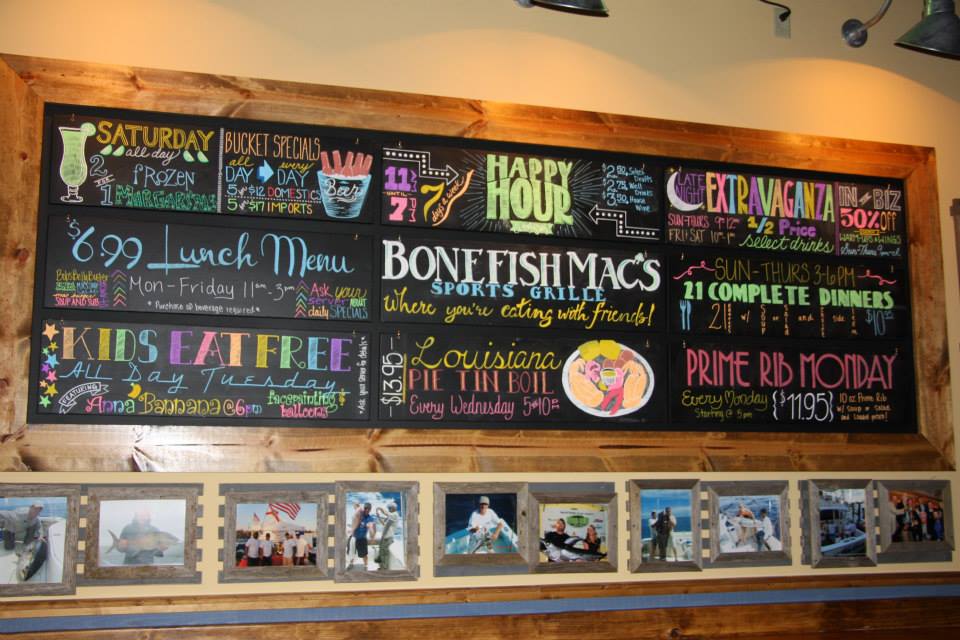 SATURDAY
all day
2 for 1
FROZEN
MARGARITAS
BUCKET SPECIALS
all day every day
5 for $12 DOMESTICS
5 for $17 IMPORTS
Beer
11 AM
UNTIL
7 PM
7 days a week
HAPPY
HOUR
$2.50 Select Drafts
$2.75 Well Drinks
$3.50 House Wine
LATE NIGHT
EXTRAVAGANZA
SUN-THURS 9-12
FRI SAT 10-1
1/2 Price
select drinks
IN THE BIZ
50% Off
$6.99 Lunch Menu
Mon-Friday 11am-3pm
SOUP AND SUB
* Purchase of beverage required *
Ask your
server ABOUT
daily SPECIALS
BONEFISH MAC'S
SPORTS GRILLE
Where you're eating with friends!
SUN-THURS 3-6PM
21 COMPLETE DINNERS
21
KIDS EAT FREE
All Day Tuesday
FEATURING
Anna Banana @ 6pm
facepainting
balloons
Louisiana
PIE TIN BOIL
$13.95
Every Wednesday 5 to 10
PRIME RIB MONDAY
Every Monday
Starting @ 5pm
{$11.95}
10 oz Prime Rib
w/ Soup or Salad
and Loaded potato!